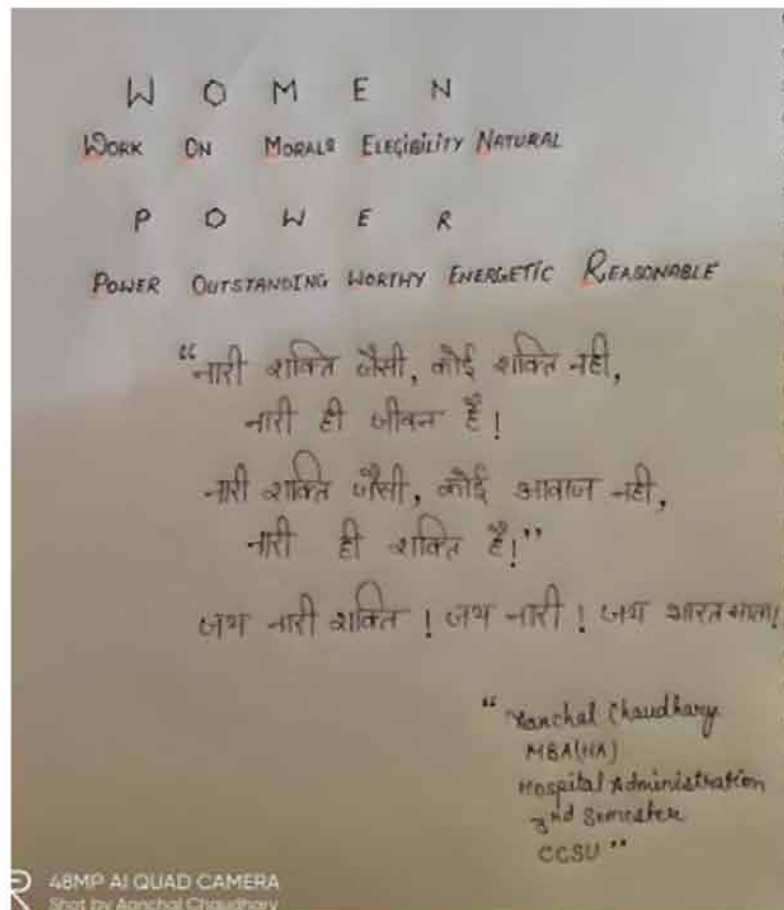 W O M E N
WORK ON MORALS ELEGIBILITY NATURAL
P O W E R
POWER OUTSTANDING WORTHY ENERGETIC REASONABLE
“नारी शक्ति जैसी, कोई शक्ति नही,
नारी ही जीवन है!
नारी शक्ति जैसी, कोई आवाज नही,
नारी ही शक्ति है!”
जय नारी शक्ति! जय नारी! जय भारत माता!
“Aanchal Chaudhary
MBA(HA)
Hospital Administration
3nd Semester
CCSU”
48MP AI QUAD CAMERA
Shot by Aanchal Chaudhary